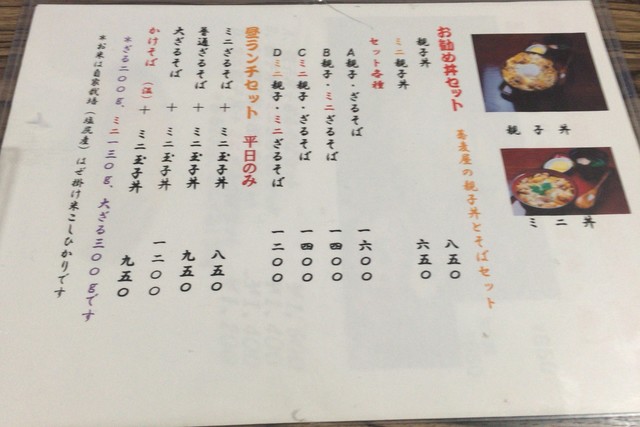 お勧め丼セット 蕎麦屋の親子丼とそばセット
親子丼 八五〇
ミニ親子丼 六五〇
セット各種
A親子・ざるそば 一六〇〇
B親子・ミニざるそば 一四〇〇
Cミニ親子・ざるそば 一四〇〇
Dミニ親子・ミニざるそば 一二〇〇
昼ランチセット 平日のみ
ミニざるそば + ミニ玉子丼 八五〇
普通ざるそば + ミニ玉子丼 九五〇
大ざるそば + ミニ玉子丼 一二〇〇
かけそば (温) + ミニ玉子丼 九五〇
*ざる二〇〇g、ミニ一三〇g、大ざる三〇〇gです
*お米は自家栽培(塩尻産)はぜ掛け米こしひかりです
親子丼
ミニ丼